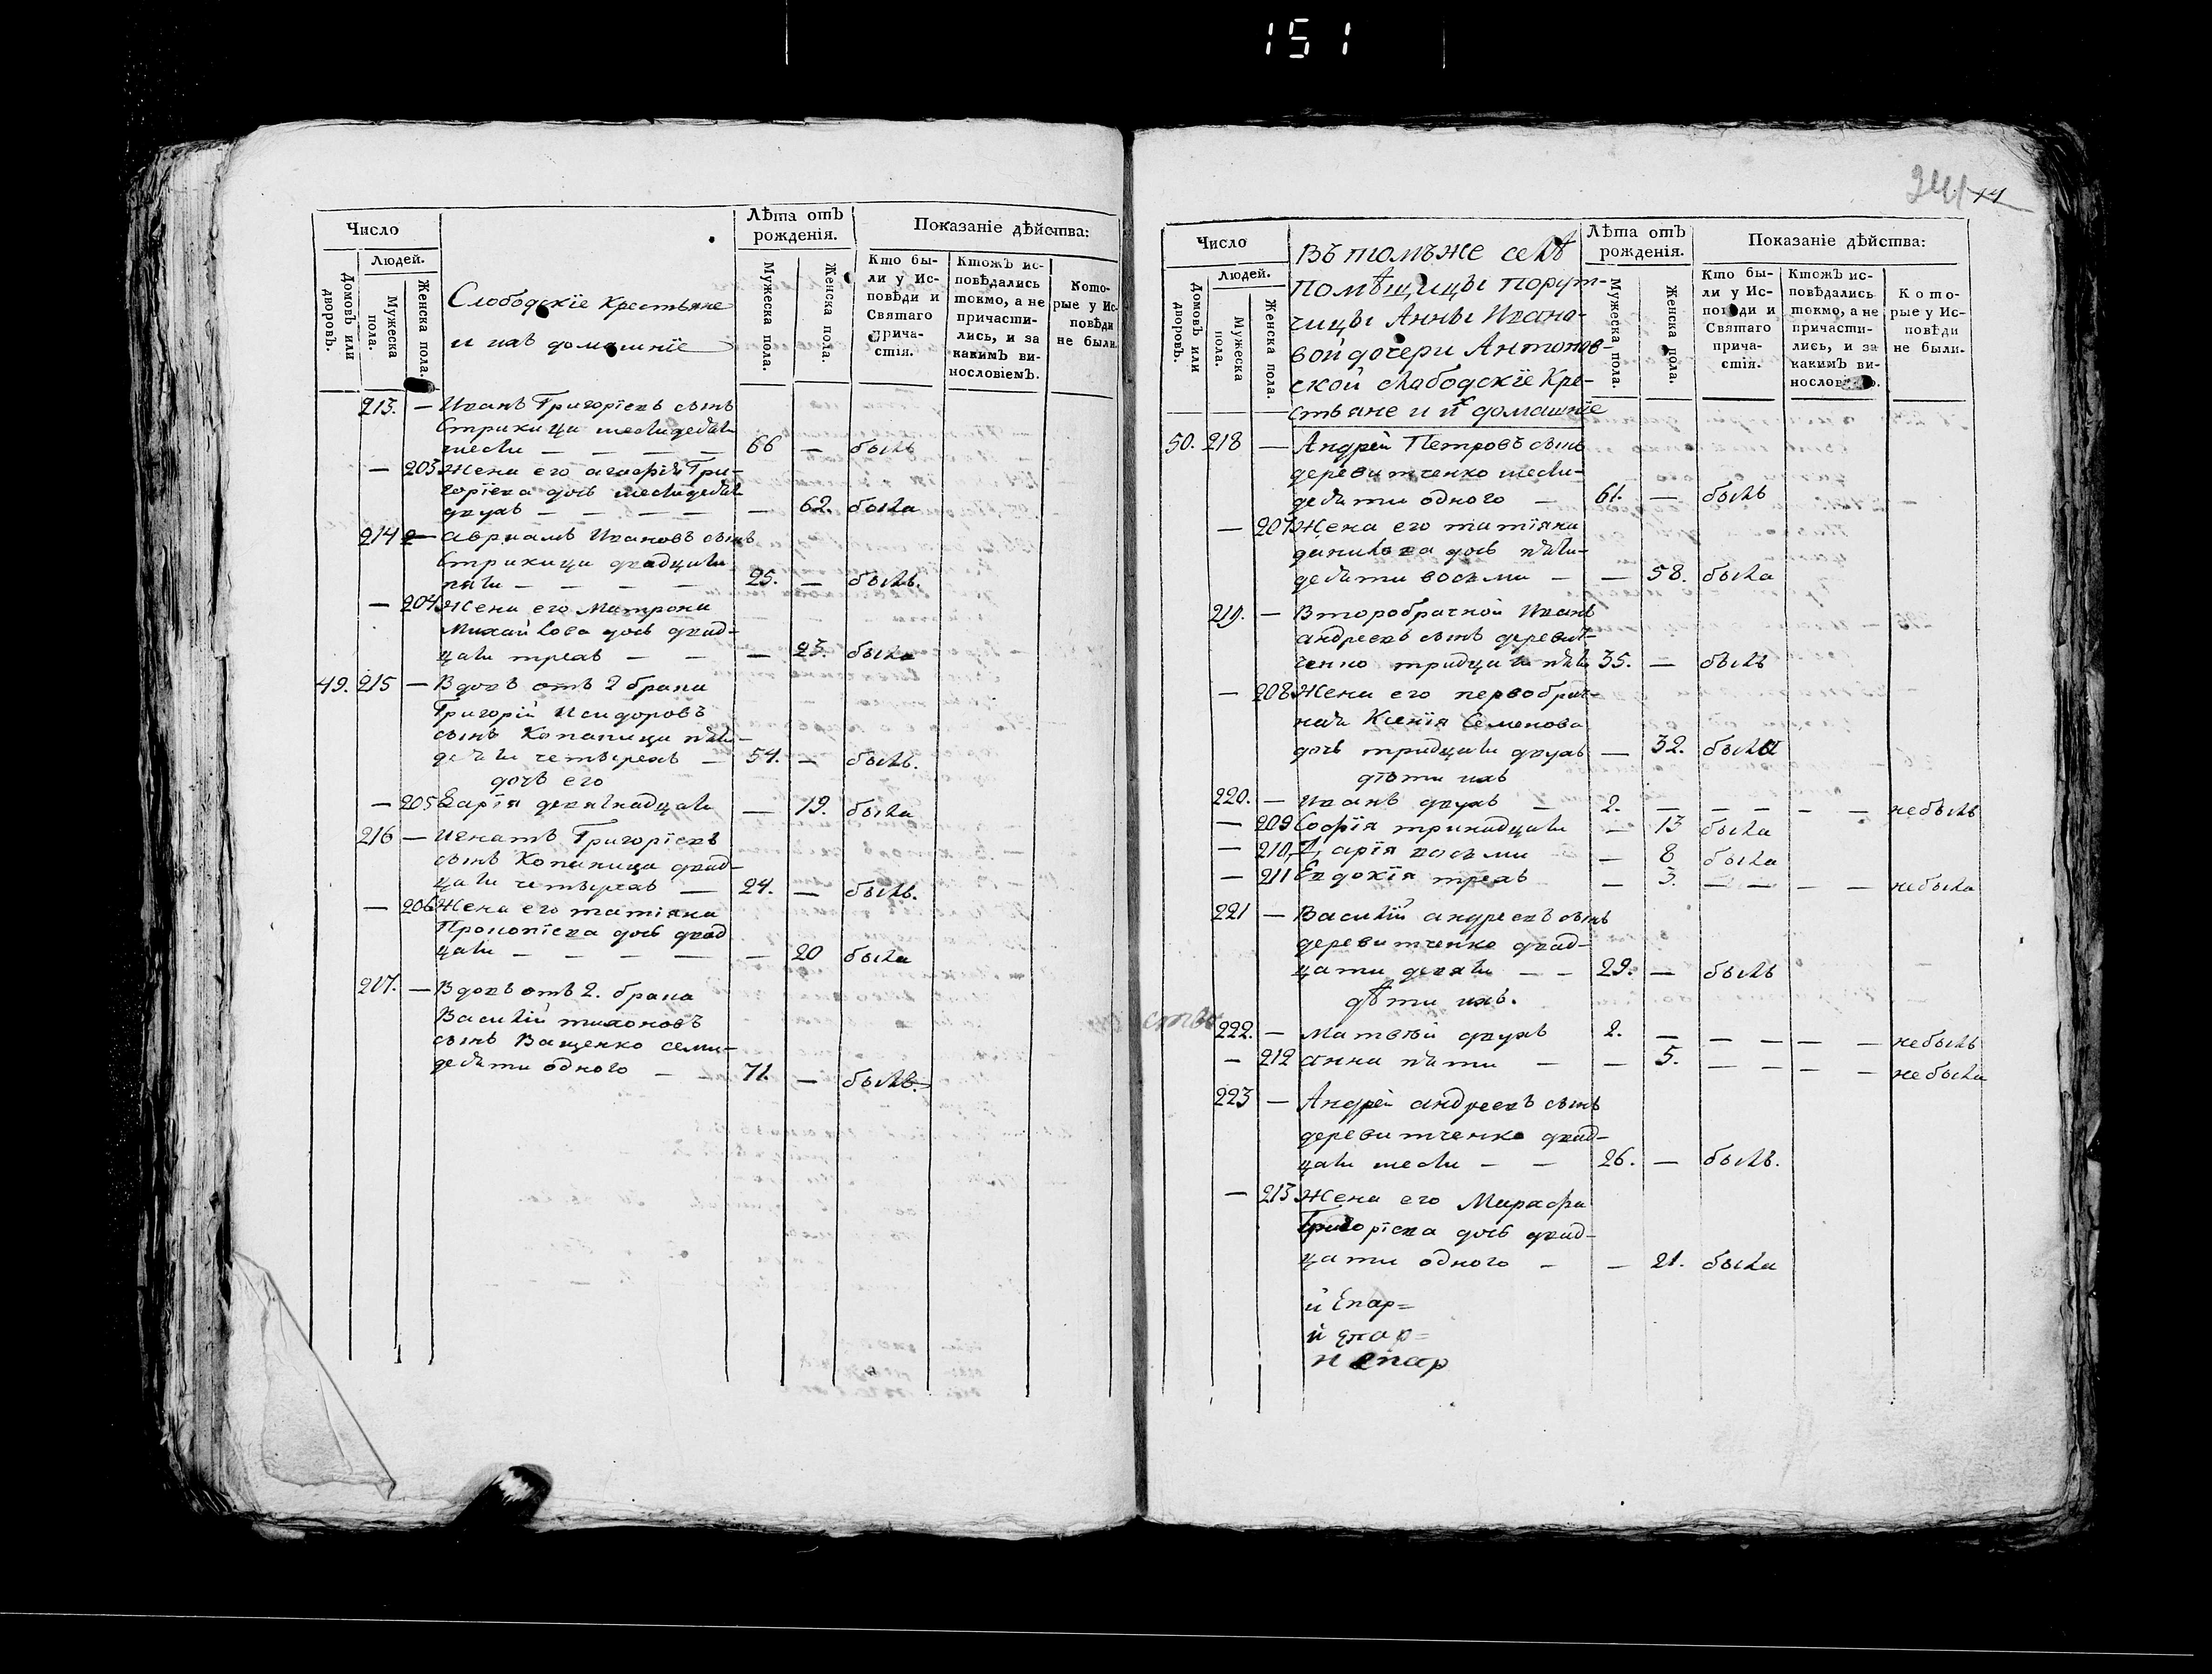 151
Число
Людей.
Домовъ или дворовъ.
Мужеска пола.
Женска пола.
Слободскїе Крестьяне
и ихъ домашнїе
Лѣта отъ рожденїя.
Мужеска пола.
Женска пола.
Показанїе дѣйства:
Кто бы-
ли у Ис-
повѣди и
Святаго
прича-
стїя.
Ктожъ ис-
повѣдались
токмо, а не
причасти-
лись, и за
какимъ ви-
нословїемъ.
Кото-
рые у Ис-
повѣди
не были.
213. — Иванъ Григорїевъ сынъ
Стрижица шестидесѧти
шести — — — — 66 — былъ
— 203 Жена его агафїѧ Гри-
горїева дочь шестидесѧти
двухъ — — — — — 62. была
214 — авраамъ Ивановъ сынъ
Стрижица двадцати
пяти — — — — 25. — былъ.
— 204 Жена его Матрона
Михайлова дочь двад-
цати трехъ — — — 23. была
49. 215 — Вдовъ отъ 2 брака
Григорїй Исидоровъ
сынъ Копапица пѧти-
десѧти четырехъ — 54. — былъ.
дочь его
— 205 Дарїя девятнадцати — 19. была
216 — Игнатъ Григорїевъ
сынъ Копапица двад-
цати четырехъ — 24. — былъ.
— 206 Жена его татїяна
Прокопїева дочь двад
цати — — — — — 20 была
217. — Вдовъ отъ 2. брака
Василїй тихоновъ
сынъ Ващенко семи-
десѧти одного — 71. — былъ.
241
Число
Людей.
Домовъ или дворовъ.
Мужеска пола.
Женска пола.
Въ томъже селѣ
помѣщицы порут-
чицы Анны Ивано-
вой дочери Антонов-
ской слабодскїе Кре-
стьяне и иˣ домашнїе
Лѣта отъ рожденїя.
Мужеска пола.
Женска пола.
Показанїе дѣйства:
Кто бы-
ли у Ис-
повѣди и
Святаго
прича-
стїя.
Ктожъ ис-
повѣдались
токмо, а не
причасти-
лись, и за
какимъ ви-
нословїемъ.
Кото-
рые у Ис-
повѣди
не были.
50. 218 — Андрей Петровъ сынъ
деревитченко шести-
десѧти одного — 61. — былъ
— 207 Жена его татїяна
данилова дочь пѧти-
десѧти восьми — — 58. была
219. — Второбрачной Иванъ
андреевъ сынъ деревит-
ченко тридцати пѧти 35. — былъ
— 208 Жена его первобрач-
наѧ Ксенїя Семенова
дочь тридцати двухъ — 32. была
дѣти ихъ
220. — Иванъ двухъ — 2. — — — — — небылъ
— 209 Софїя тринадцати — 13 была
— 210 Дарїя восьми — 8 была
— 211 Евдокїя трехъ — 3. — — — — небыла
221 — Василїй андреевъ сынъ
деревитченко двад-
цати девяти — — 29. — былъ
дѣти ихъ.
222. — Матвѣй двухъ 2. — — — — — небылъ
— 212 анна пѧти — — 5. — — — — небыла
223 — Андрей андреевъ сынъ
деревитченко двад-
цати шести — — 26. — былъ.
— 213 Жена его Марафа
Григорїева дочь двад-
цати одного — — 21. была
й Епар=
й епар=
н епар